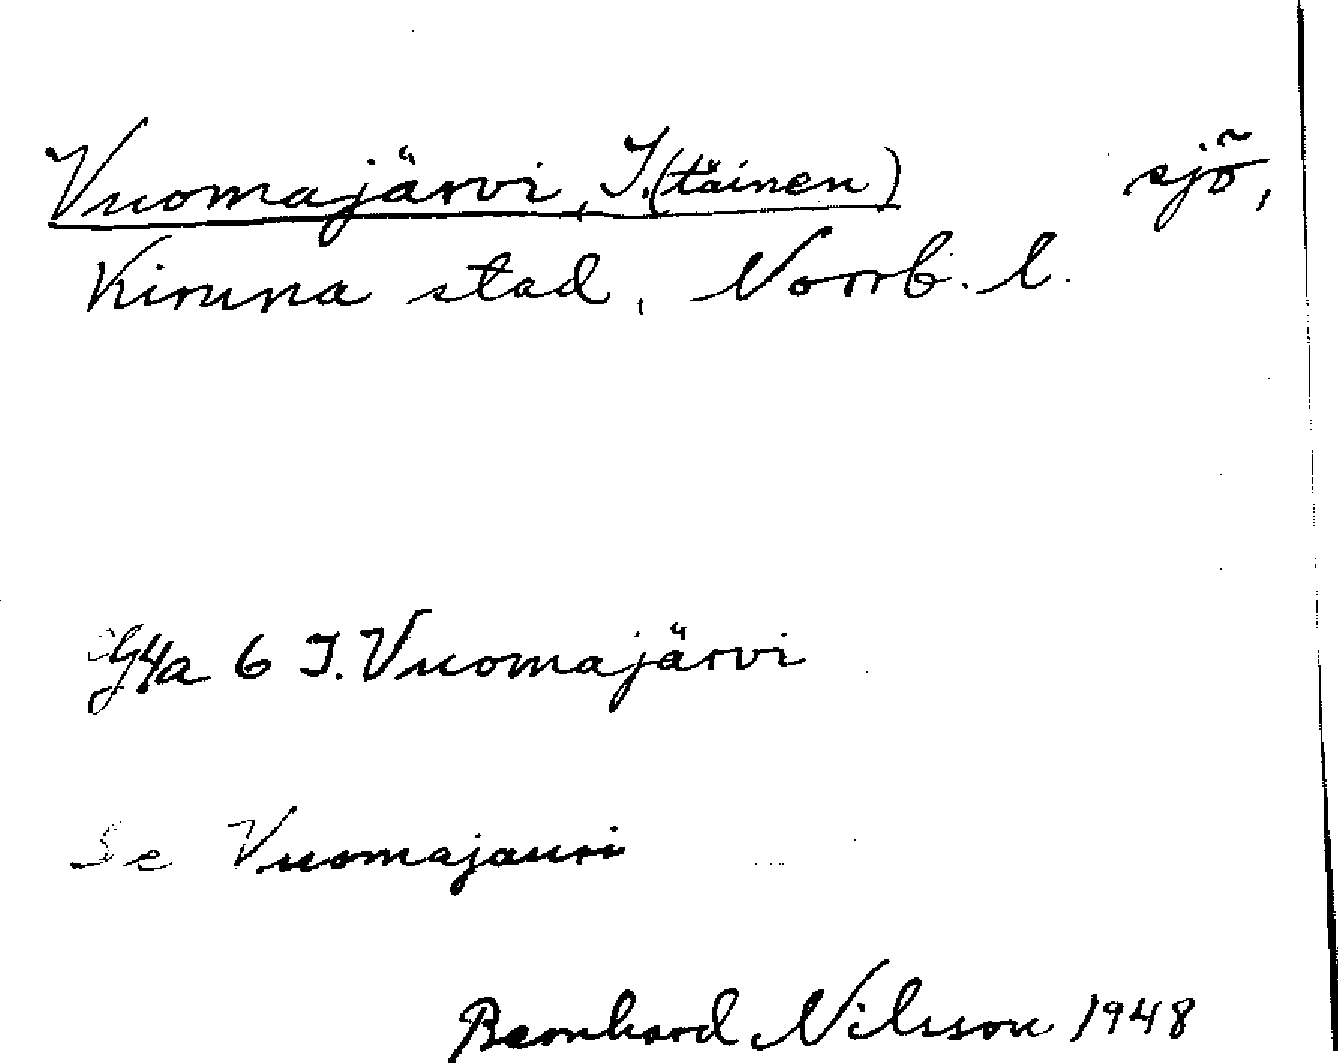 Vuomajärvi, I.(täinen) sjö,
Kiruna stad, Norrb. l.
G4a 6 I. Vuomajärvi
Se Vuomajauri
Bernhard Nilsson 1948